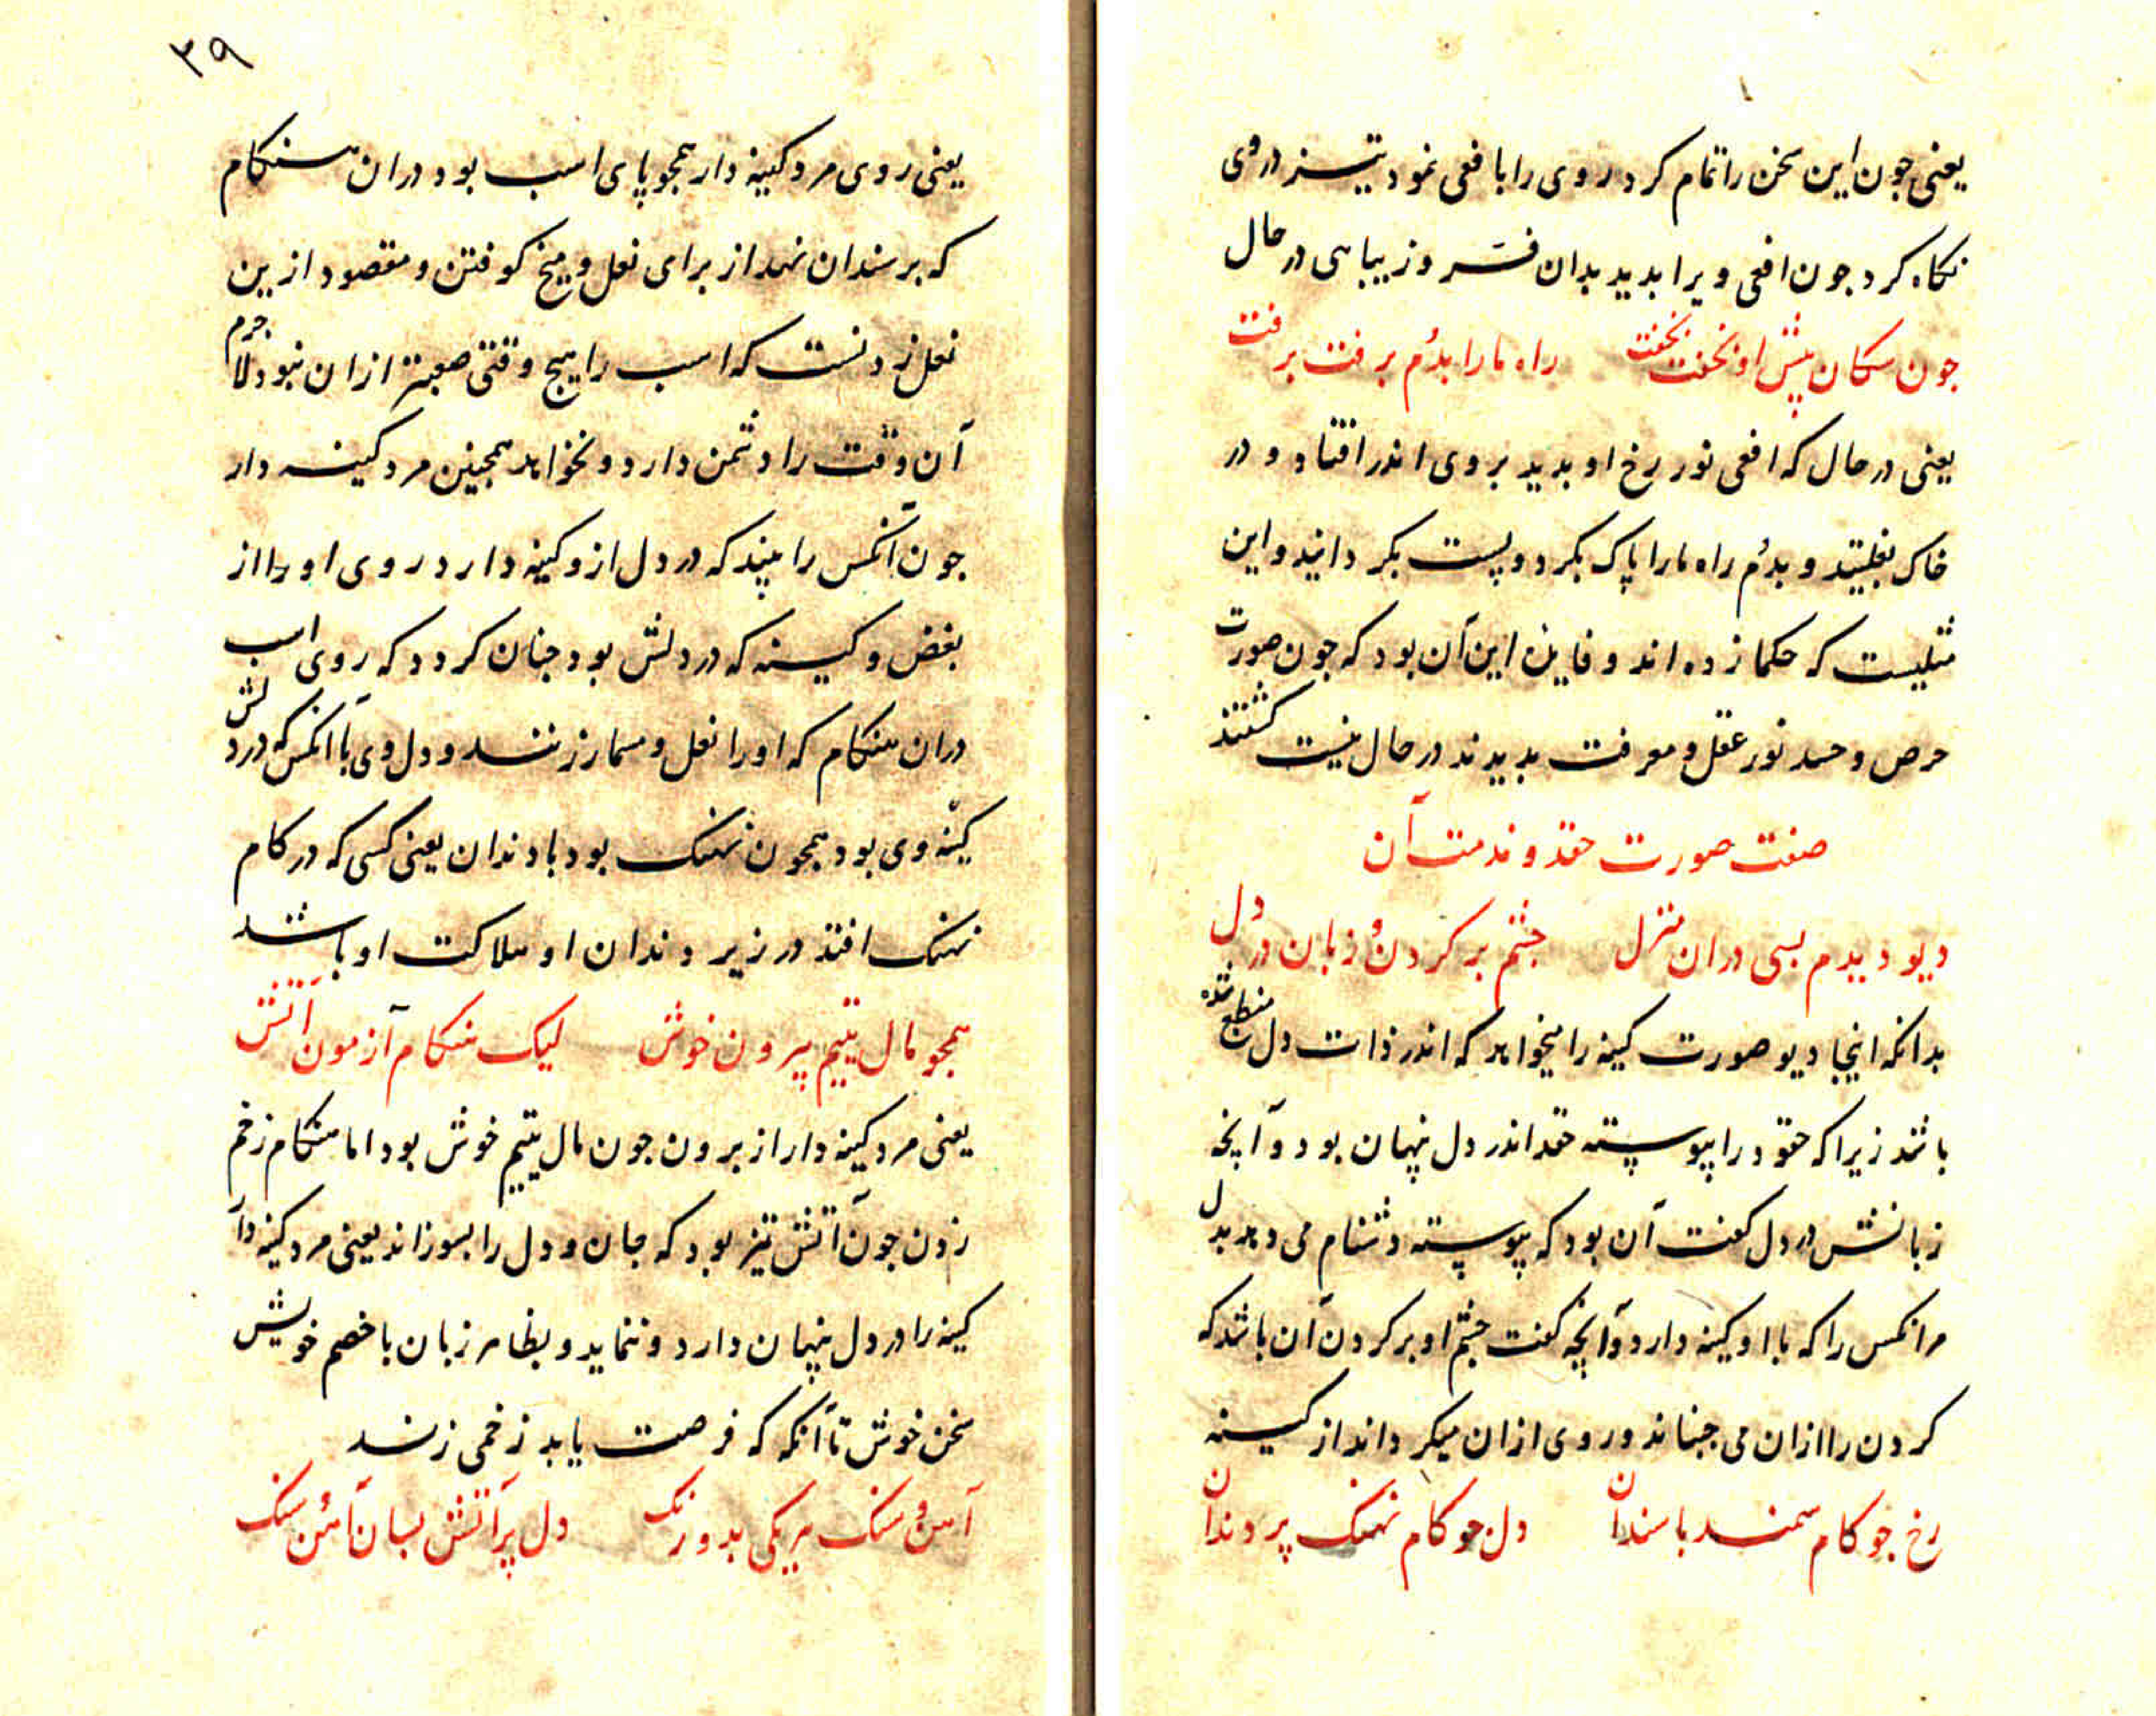 یعنی جون این سخن را تمام کرد روی را بافعی نمود تیز در وی
نکاه کرد جون افعی ویرا بدید بدان فر و زیبایی در حال
جون سکان پیش او نخفت نخفت راه ما را بدُم برفت برفت
یعنی در حال که افعی نور رخ او بدید بروی اندر افتاد و در
خاک بغلتید و بدُم راه ما را پاک بکرد و پست بکردانید و این
مثلیست که حکما زده اند و فایده این آن بود که جون صورت
حرص و حسد نور عقل و معرفت بدیدند در حال نیست کشتند
صفت صورت حقد و مذمت آن
دیو دیدم بسی دران منزل جشم بر کردن و زبان در دل
بدانکه اینجا دیو صورت کینه را میخواهد که اندر ذات دل منطبع شده
باشد زیرا که حقود را پیوسته حقد اندر دل پنهان بود و آنجه
زبانش در دل کفت آن بود که پیوسته دشنام می دهد بدل
مر انکس را که با او کینه دارد و آنجه کفت جشم او بر کردن آن باشد که
کردن را ازان می جنباند و روی ازان میکرداند از کینه
رخ جو کام سمند با سندان دل جو کام نهنک پر دندان
۳۹
یعنی روی مرد کینه دار همجو پای اسب بود دران هنکام
که بر سندان نهد از برای نعل و میخ کوفتن و مقصود ازین
نعل زدنست که اسب را هیج وقتی صعبتر ازان نبود لاجرم
آن وقت را دشمن دارد و نخواهد همجنین مرد کینه دار
جون آنکس را بیند که در دل ازو کینه دارد روی او را از
بغض و کینه که در دلش بود جنان کردد که روی اسب
دران هنکام که او را نعل و مسمار زنند و دل وی با آنکس که در دلش
کینه وی بود همجون نهنک بود با دندان یعنی کسی که در کام
نهنک افتد در زیر دندان او هلاکت او باشد
همجو مال یتیم بیرون خوش لیک هنکام آزمون آتش
یعنی مرد کینه دار از برون جون مال یتیم خوش بود اما هنکام زخم
زدن جون آتش تیز بود که جان و دل را بسوزاند یعنی مرد کینه دار
کینه را در دل پنهان دارد و ننماید و بظاهر زبان با خصم خویش
سخن خوش تا آنکه که فرصت یابد زخمی زند
آهن و سنک هر یکی بدو رنک دل پر آتش بسان آهن و سنک